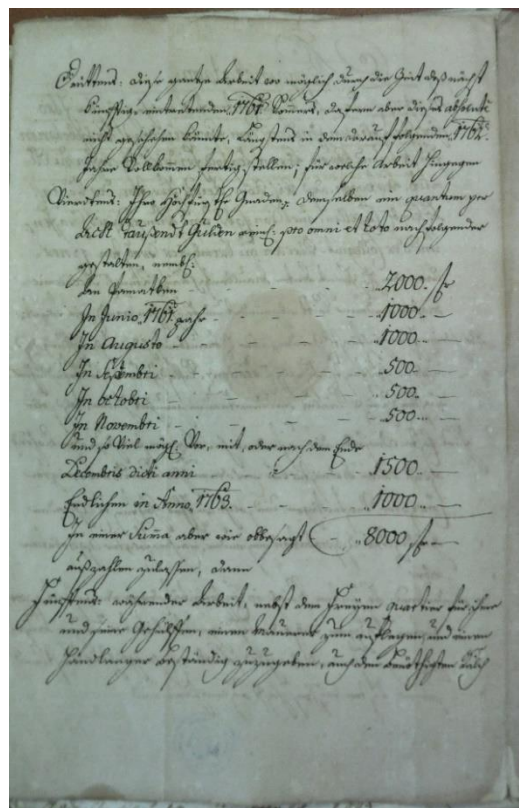 Drittens: diese gantze Arbeit wo möglich durch die Zeit deß nächst
künfftig eintretenden 1761 Sommers, dafern aber dieses absolute
nicht geschehen könnte, längstens in dem darauf folgenden 1762
Jahre Vollkommen fertig stellen; für welche Arbeit hingegen
Vierdtens: Ihro Hochfürstl Gnaden demselben ein quantum per
Acht Taußendt Gulden rhein: pro omni et toto nachfolgender
gestalten, nembl:
2000. fr
In Junio 1761 Jahr - - - - 1000. -
In Augusto - - - - 1000. -
In 7bri - - - - 500. -
In Octobri - - - - 500. -
In Novembri - - - - 500. -
und so Viel mögl: Vor, mit, oder nach dem Ende
Decembris dicti anni - - 1500. -
Endlichen in Anno 1763. - - - 1000. -
In einer Suma aber wie obbesagt - 8000 fr -
außzahlen zulassen, dann
Fünfftens: währender Arbeit, nebst dem freyen quartier für ihne
und seine Gehülffen, einen Maurer zum und einen
Handlanger beständig zuzugeben, auch den benöthigten Kalch